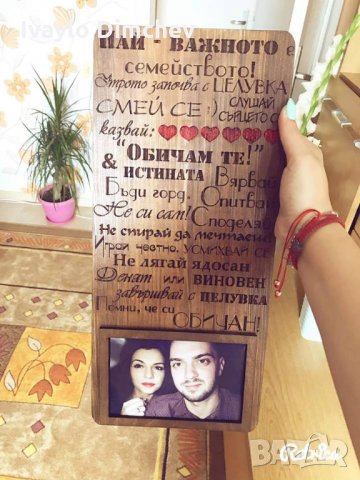 Ivaylo Dimchev
НАЙ - ВАЖНОТО е
семейството!
Утрото започва с ЦЕЛУВКА
СМЕЙ СЕ :) СЛУШАЙ
СЪРЦЕТО си
казвай:
"ОБИЧАМ ТЕ!"
& ИСТИНАТА Вярвай
Бъди горд. Опитвай
Не си сам! Споделяй
Не спирай да мечтаеш
Играй честно. УСМИХВАЙ СЕ
Не лягай ядосан
Денят или ВИНОВЕН
завършвай с ЦЕЛУВКА
Помни, че си
ОБИЧАН!
bazar